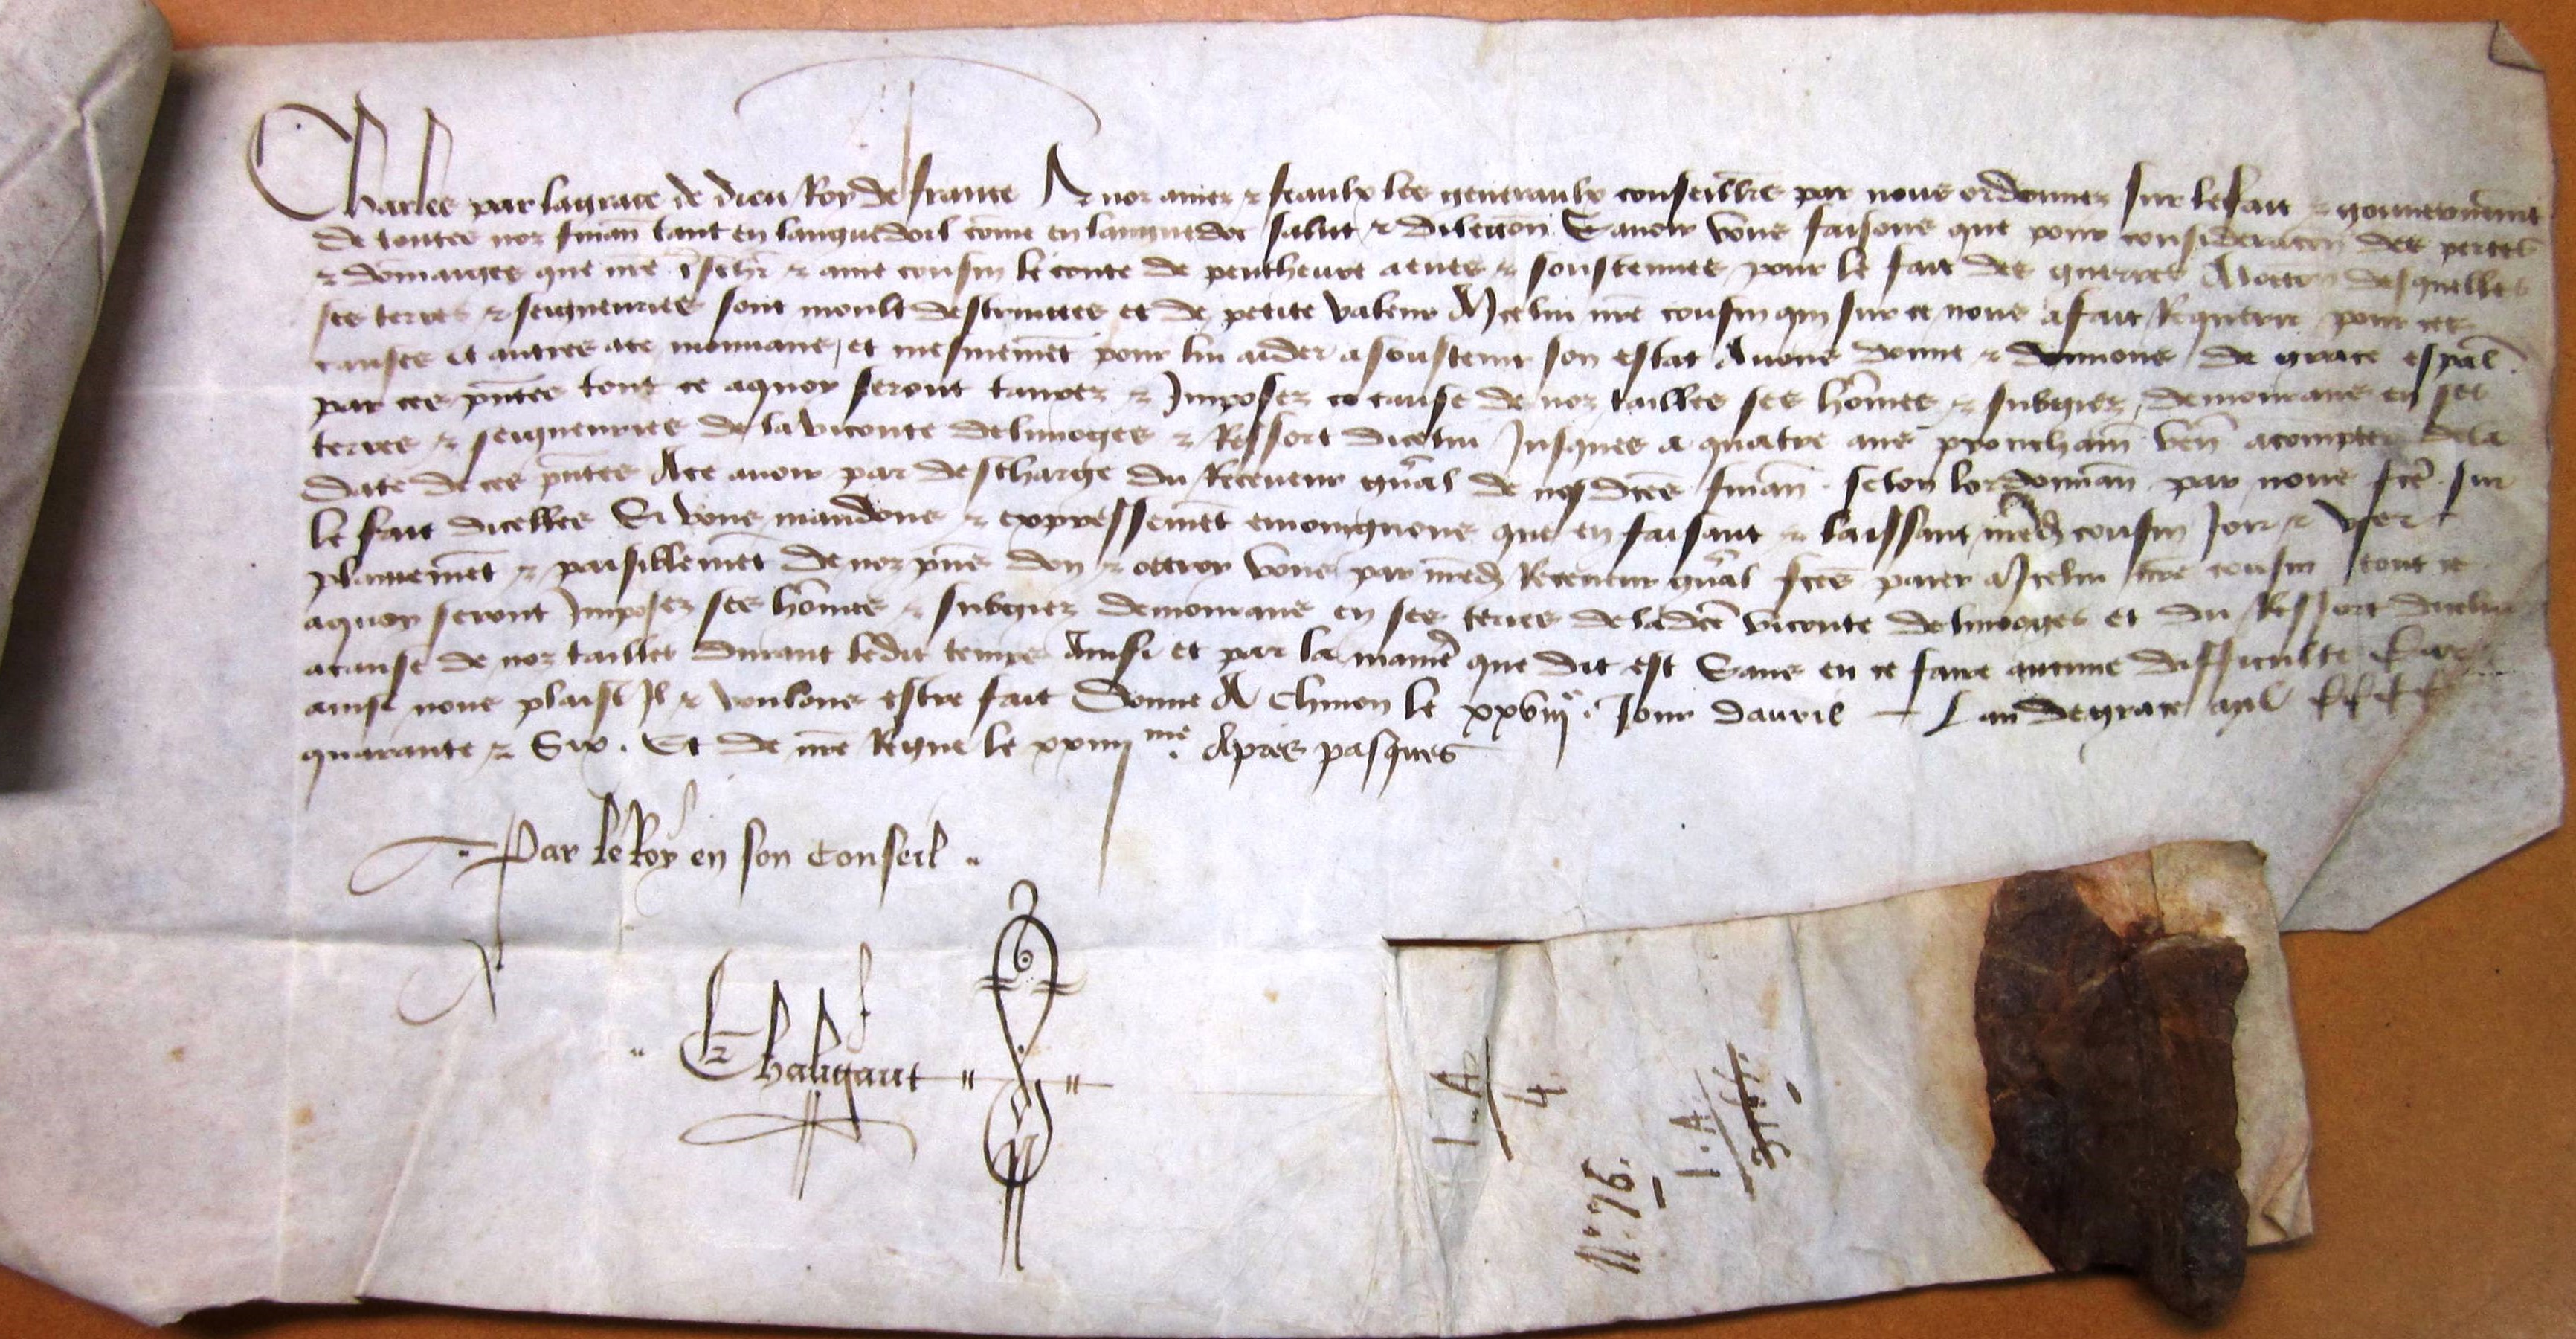 Charles par la grace de dieu Roy de france A noz amez & feaulx les generaulx conseillrs par nous ordonnez sur le fait & gouvernemt
de toutes noz finan tant en languedoil come en languedoc salut & dilection Savoir vous faisons que pour consideracon des pertes
& dommaiges que nre treschr & ame cousin le conte de penthevre a eues & soustenues pour le fait des guerres Aloccon desquelles
ses terres & seigneuries sont moult destruittes et de petite valeur A Icelui nre cousin qui sur ce nous a fait Requerir pour ces
causes et autres a ce mouvans, et mesmement pour lui aider a soustenir son estat Avons donne & donnons de grace espal
par ces pntes tout ce a quoy seront tauxez & Imposez a cause de noz tailles ses homes & subgiez demourans en ses
terres & seigneuries de la viconte de limoges & Ressort dicelui Jusques a quatre ans prouchain ven a compter de la
date de ces pntes A ce avoir par descharge du Receveur gnal de nosdces finan selon lordonnan par nous fce sur
le fait dicelles Si vous mandons & expressement enjoignons que en faisant & laissant nredit cousin Joir & user
plainement & paisiblement de noz pns don & ottroy vous par nredit Receveur gnal fces paier a Icelui nre cousin tout ce
a quoy seront Imposez ses homes & subgiez demourans en ses terres de ladce viconte de limoges et du Ressort dicelui
a cause de noz tailles durant ledit temps Ainsi et par la manie que dit est Sans en ce faire aucune difficulte Car
ainsi nous plaist Il & voulons estre fait Donne A Chinon le xxviije Jour davril Lan de grace mil CCCC
quarante & Six. Et de nre Regne le xxiiijme Apres pasques
Par le Roy en son Conseil
Chaligaut
1. A
4
1. A.